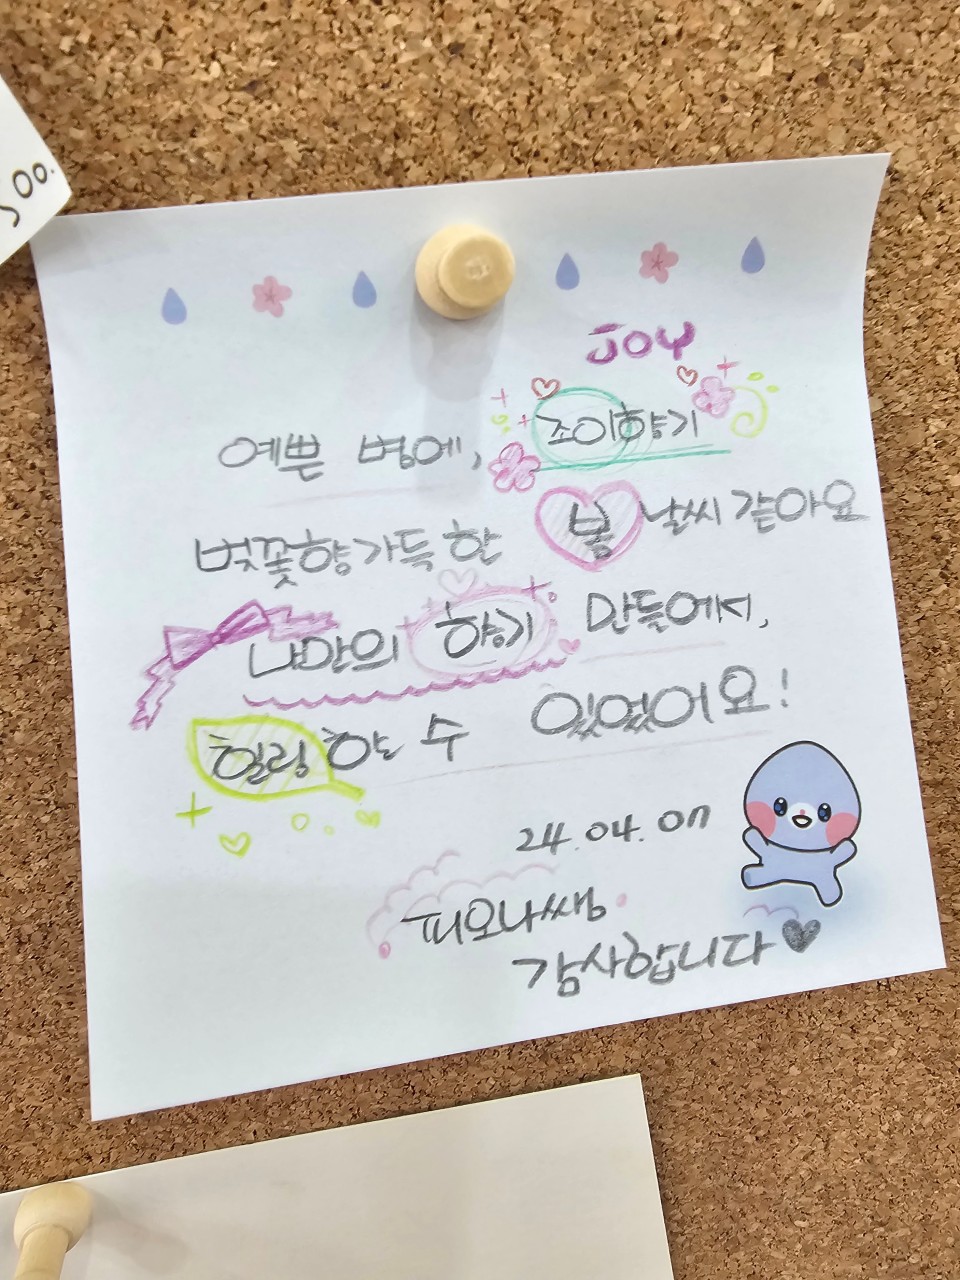 500.
JOY
예쁜 병에, 조이향기
벚꽃향 가득 한 봄 날씨 같아요
나만의 향기 만들에서,
힐링 할 수 있었어요!
24.04.07
피오나쌤
감사합니다